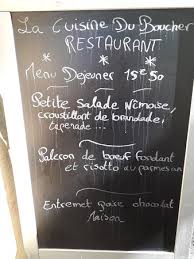 La Cuisine Du Boucher
RESTAURANT
Menu Dejeuner 15€50
Petite Salade Nîmoise,
croustillant de brandade,
tapenade...
Paleron de bœuf fondant
et risotto au parmesan
Entremet poire chocolat
Maison